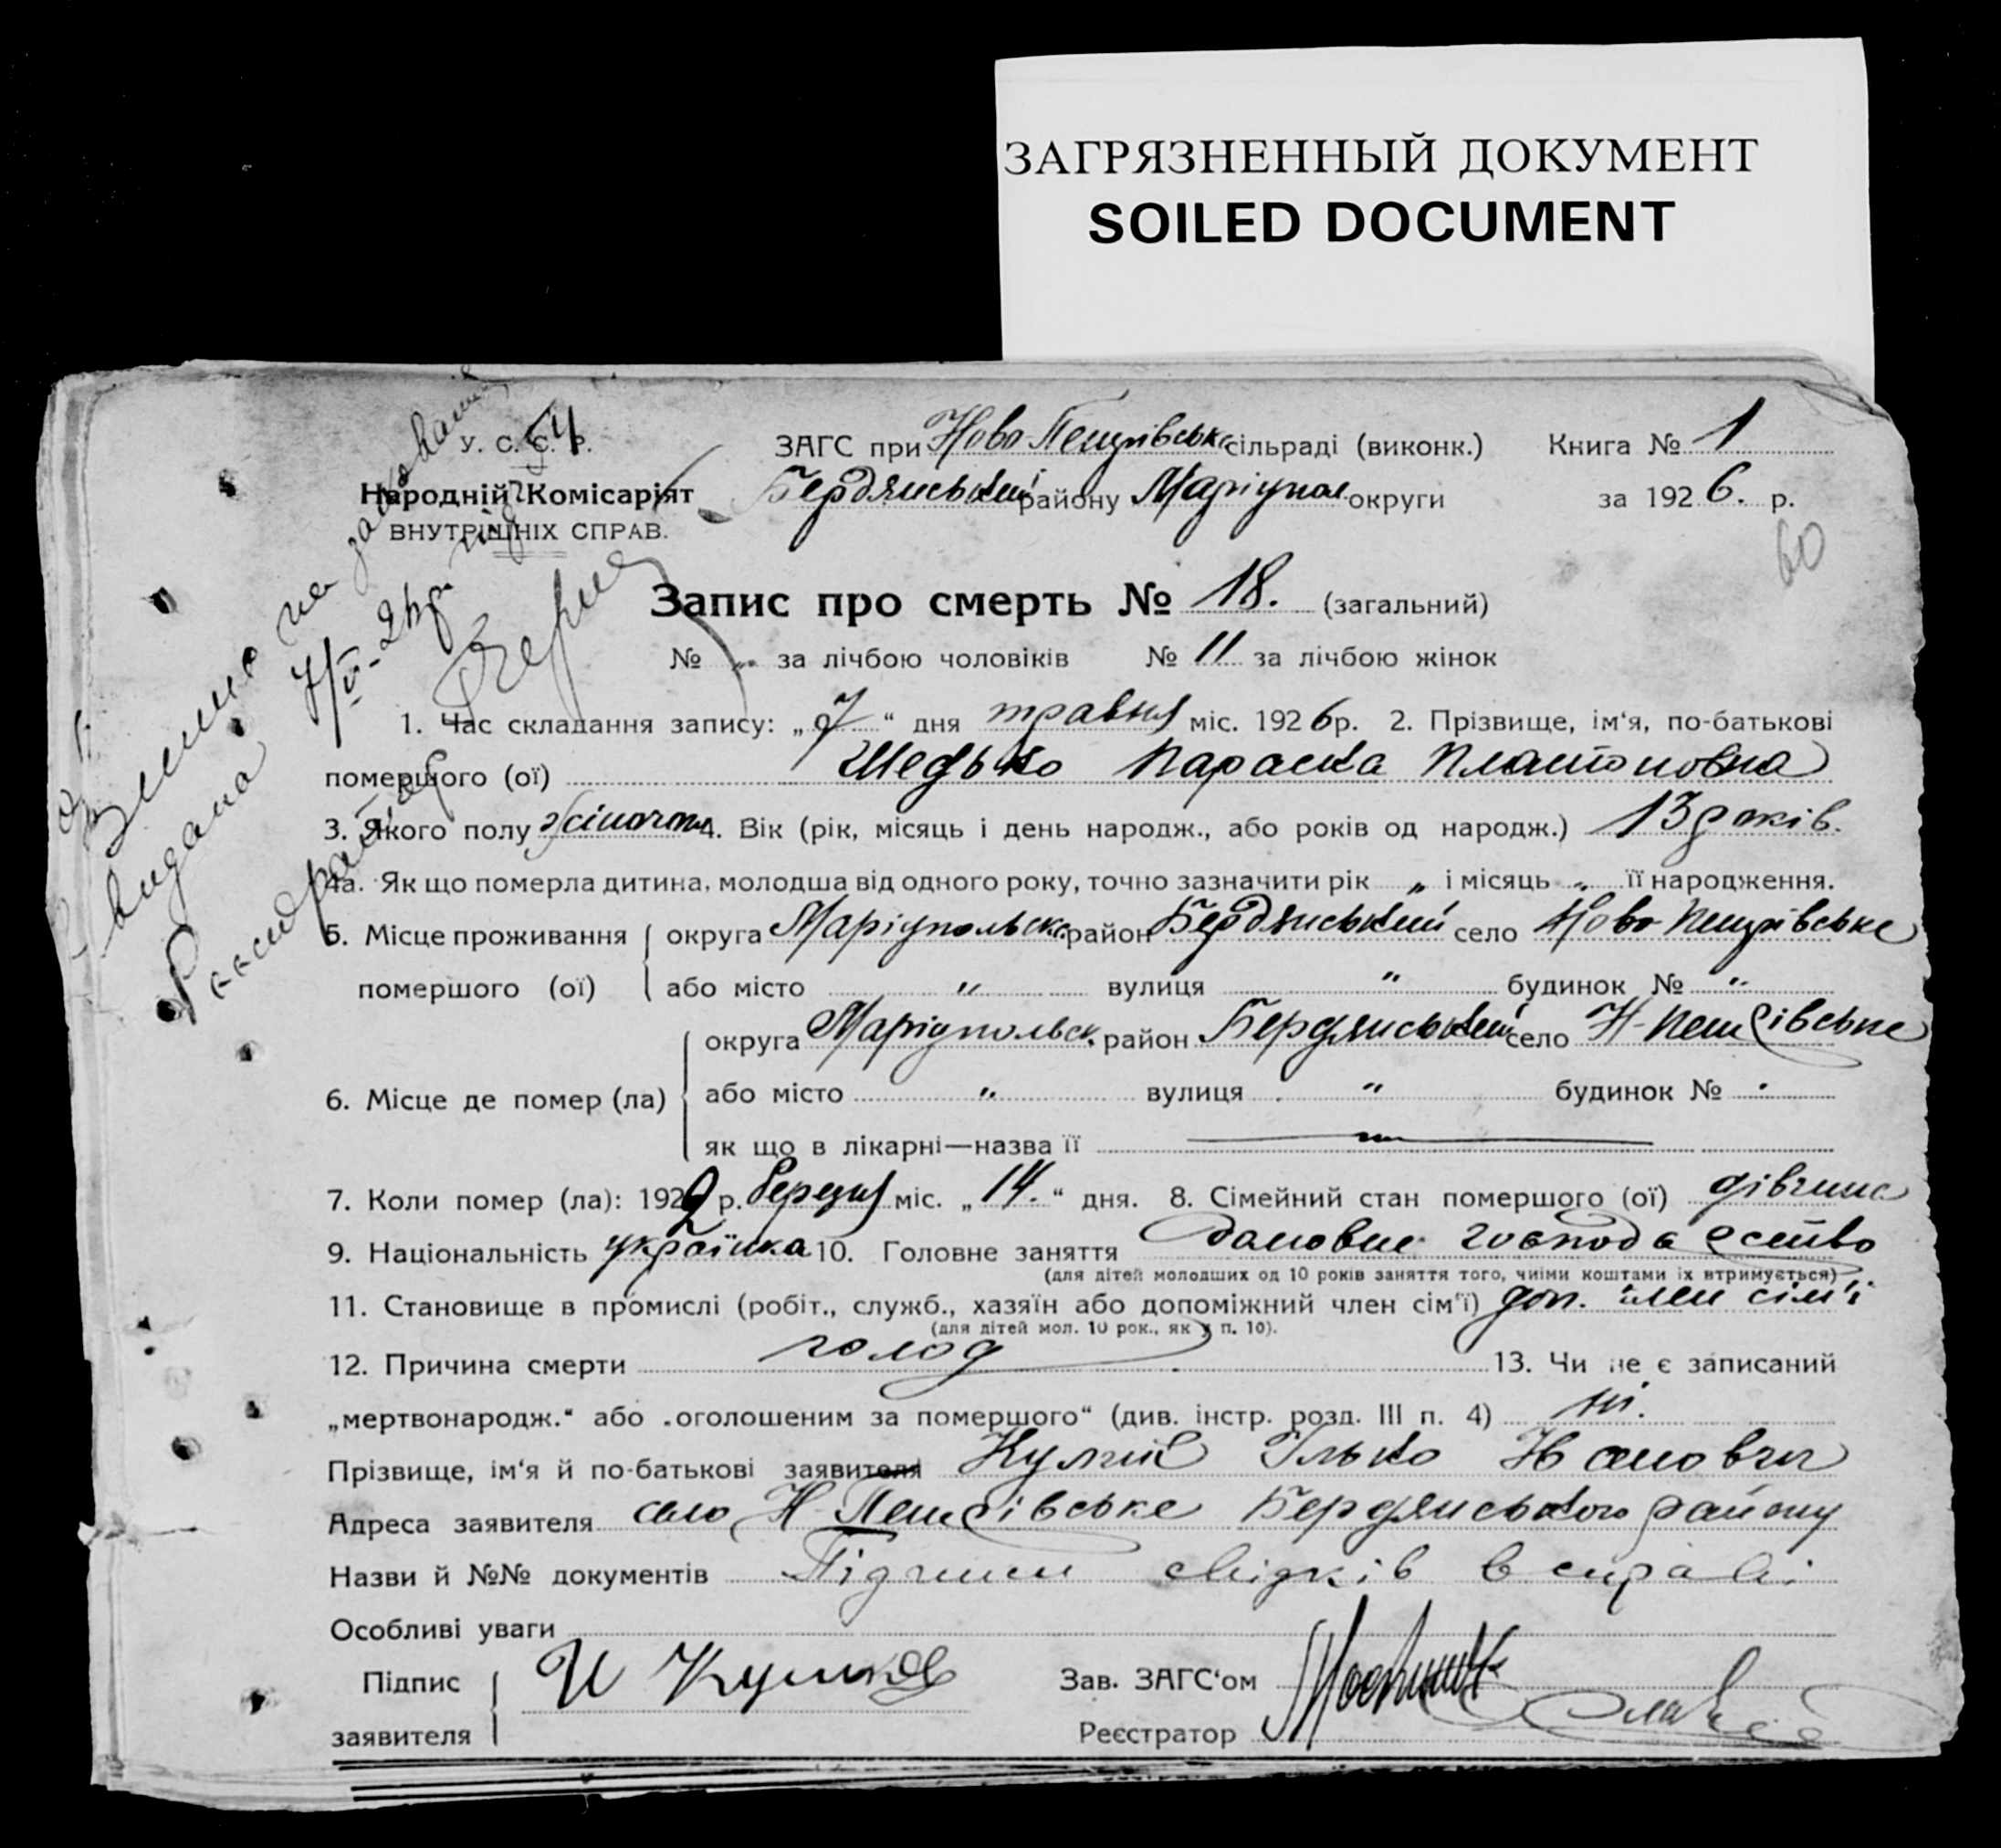 ЗАГРЯЗНЕННЫЙ ДОКУМЕНТ
SOILED DOCUMENT
У. С. С. Р.
ЗАГС при Ново Петрівськ сільраді (виконк.) Книга № 1
Народній Комісаріят
Бердянський району Маріупол. округи за 1926. р.
ВНУТРІШНІХ СПРАВ.
60
Запис про смерть № 18. (загальний)
№ „ за лічбою чоловіків № 11 за лічбою жінок
1. Час складання запису: „ 7 “ дня травня міс. 1926 р. 2. Прізвище, ім‘я, по-батькові
помершого (ої) Шедько Параска Платоновна
3. Якого полу жіночого 4. Вік (рік, місяць і день народж., або років од народж.) 13 років.
4а. Як що померла дитина, молодша від одного року, точно зазначити рік „ і місяць „ її народження.
5. Місце проживання округа Маріупольськ. район Бердянський село Ново Петрівське
помершого (ої) або місто „ вулиця „ будинок № „
округа Маріупольск. район Бердянський село Н-Петрівське
6. Місце де помер (ла) або місто „ вулиця „ будинок № „
як що в лікарні—назва її —
7. Коли помер (ла): 1922 р. березня міс. „ 14. “ дня. 8. Сімейний стан помершого (ої) дівчина
9. Національність українка 10. Головне заняття домовне господарство
(для дітей молодших од 10 років заняття того, чиїми коштами їх втримується)
11. Становище в промислі (робіт., служб., хазяїн або допоміжний член сім‘ї) доп. член сім‘ї
(для дітей мол. 10 рок., як у п. 10).
12. Причина смерти голод 13. Чи не є записаний
„мертвонародж.“ або „оголошеним за помершого“ (див. інстр. розд. III п. 4) ні.
Прізвище, ім‘я й по-батькові заявителя Ілько
Адреса заявителя село Н-Петрівське Бердянського району
Назви й №№ документів Підписи свідків в справі
Особливі уваги
Підпис
Зав. ЗАГС‘ом
заявителя
Реєстратор